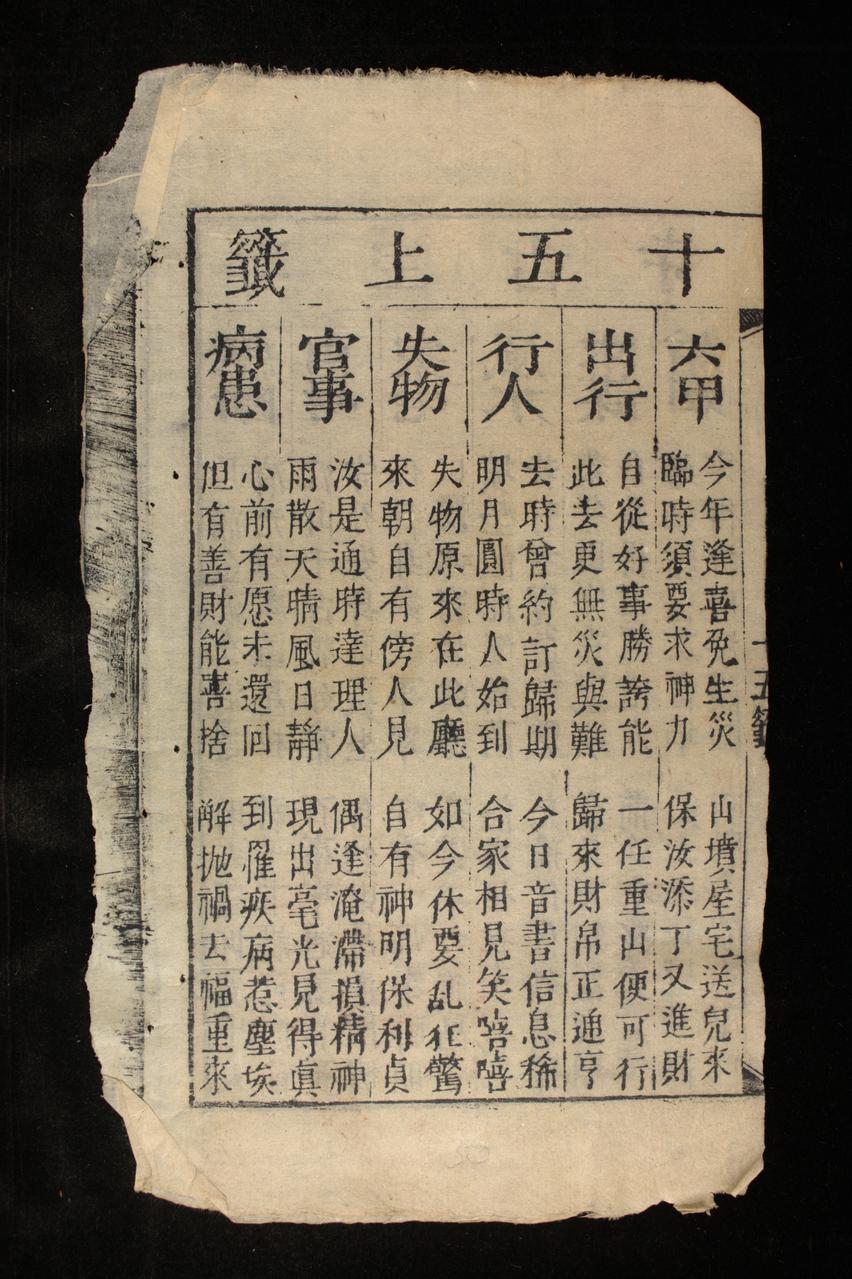 十五上籤
十五籤
六甲
今年逢喜免生災 山墳屋宅送兒來
臨時須要求神力 保汝添丁又進財
出行
自從好事勝誇能 一任重山便可行
此去更無災與難 歸來財帛正通亨
行人
去時曾約訂歸期 今日音書信息稀
明月圓時人始到 合家相見笑嘻嘻
失物
失物原來在此廳 如今休要乱狂驚
來朝自有傍人見 自有神明保利貞
官事
汝是通時達理人 偶逢淹滯損精神
雨散天晴風日靜 現出毫光見得眞
病患
心前有愿未還回 到罹疾病惹塵埃
但有善財能喜捨 解抛禍去福重來